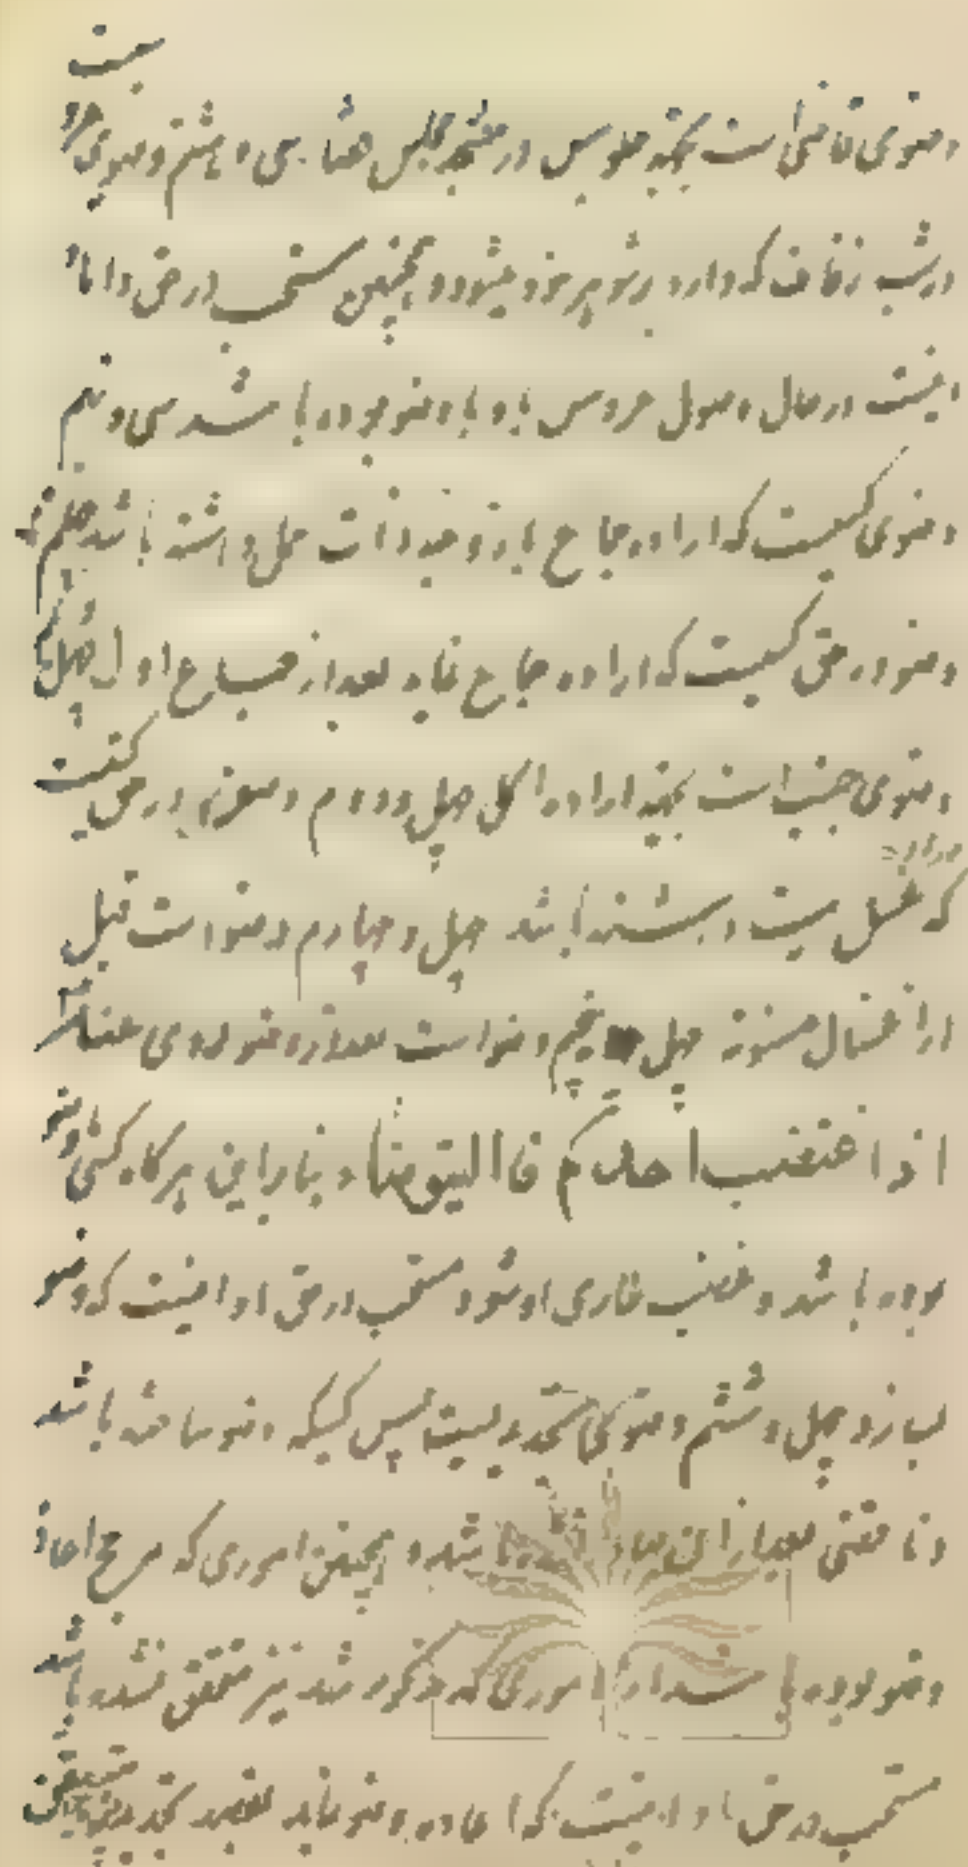 وضوی قاضی است بجهة جلوس در مجلس قضا سی و هشتم وضوی مرد
در شب زفاف که وارد بر شوهر خود میشود و همچنین مستحب در حق داماد
اینست در حال وصول عروس باو با وضو بوده باشد سی و نهم
وضوی کسیست که اراده جماع با زوجه ذات حمل داشته باشد چهلم
وضو در حق کسیست که اراده جماع نماید بعد از جماع اول چهل و یکم
وضوی جنب است بجهة اراده اکل چهل و دوم وضو در حق کسیست
که غسل میت داشته باشد چهل و چهارم وضو است قبل
از اغسال مسنونه چهل پنجم وضو است بعد از
اذا اغتضب احدکم فالیتوضأ و بنابراین هرگاه کسی با وضو
بوده باشد و غضب طاری او شود مستحب در حق او اینست که وضو
بسازد چهل و ششم وضوی تجدیدیست پس کسیکه وضو ساخته باشد
و ناقضی بعد از آن صادر نشده باشد و همچنین اموری که مرجح اعاده
وضو بوده باشد از اموری که مذکور شد نیز متحقق نشده باشد
مستحب در حق او اینست که اعاده وضو نماید بقصد تجدید